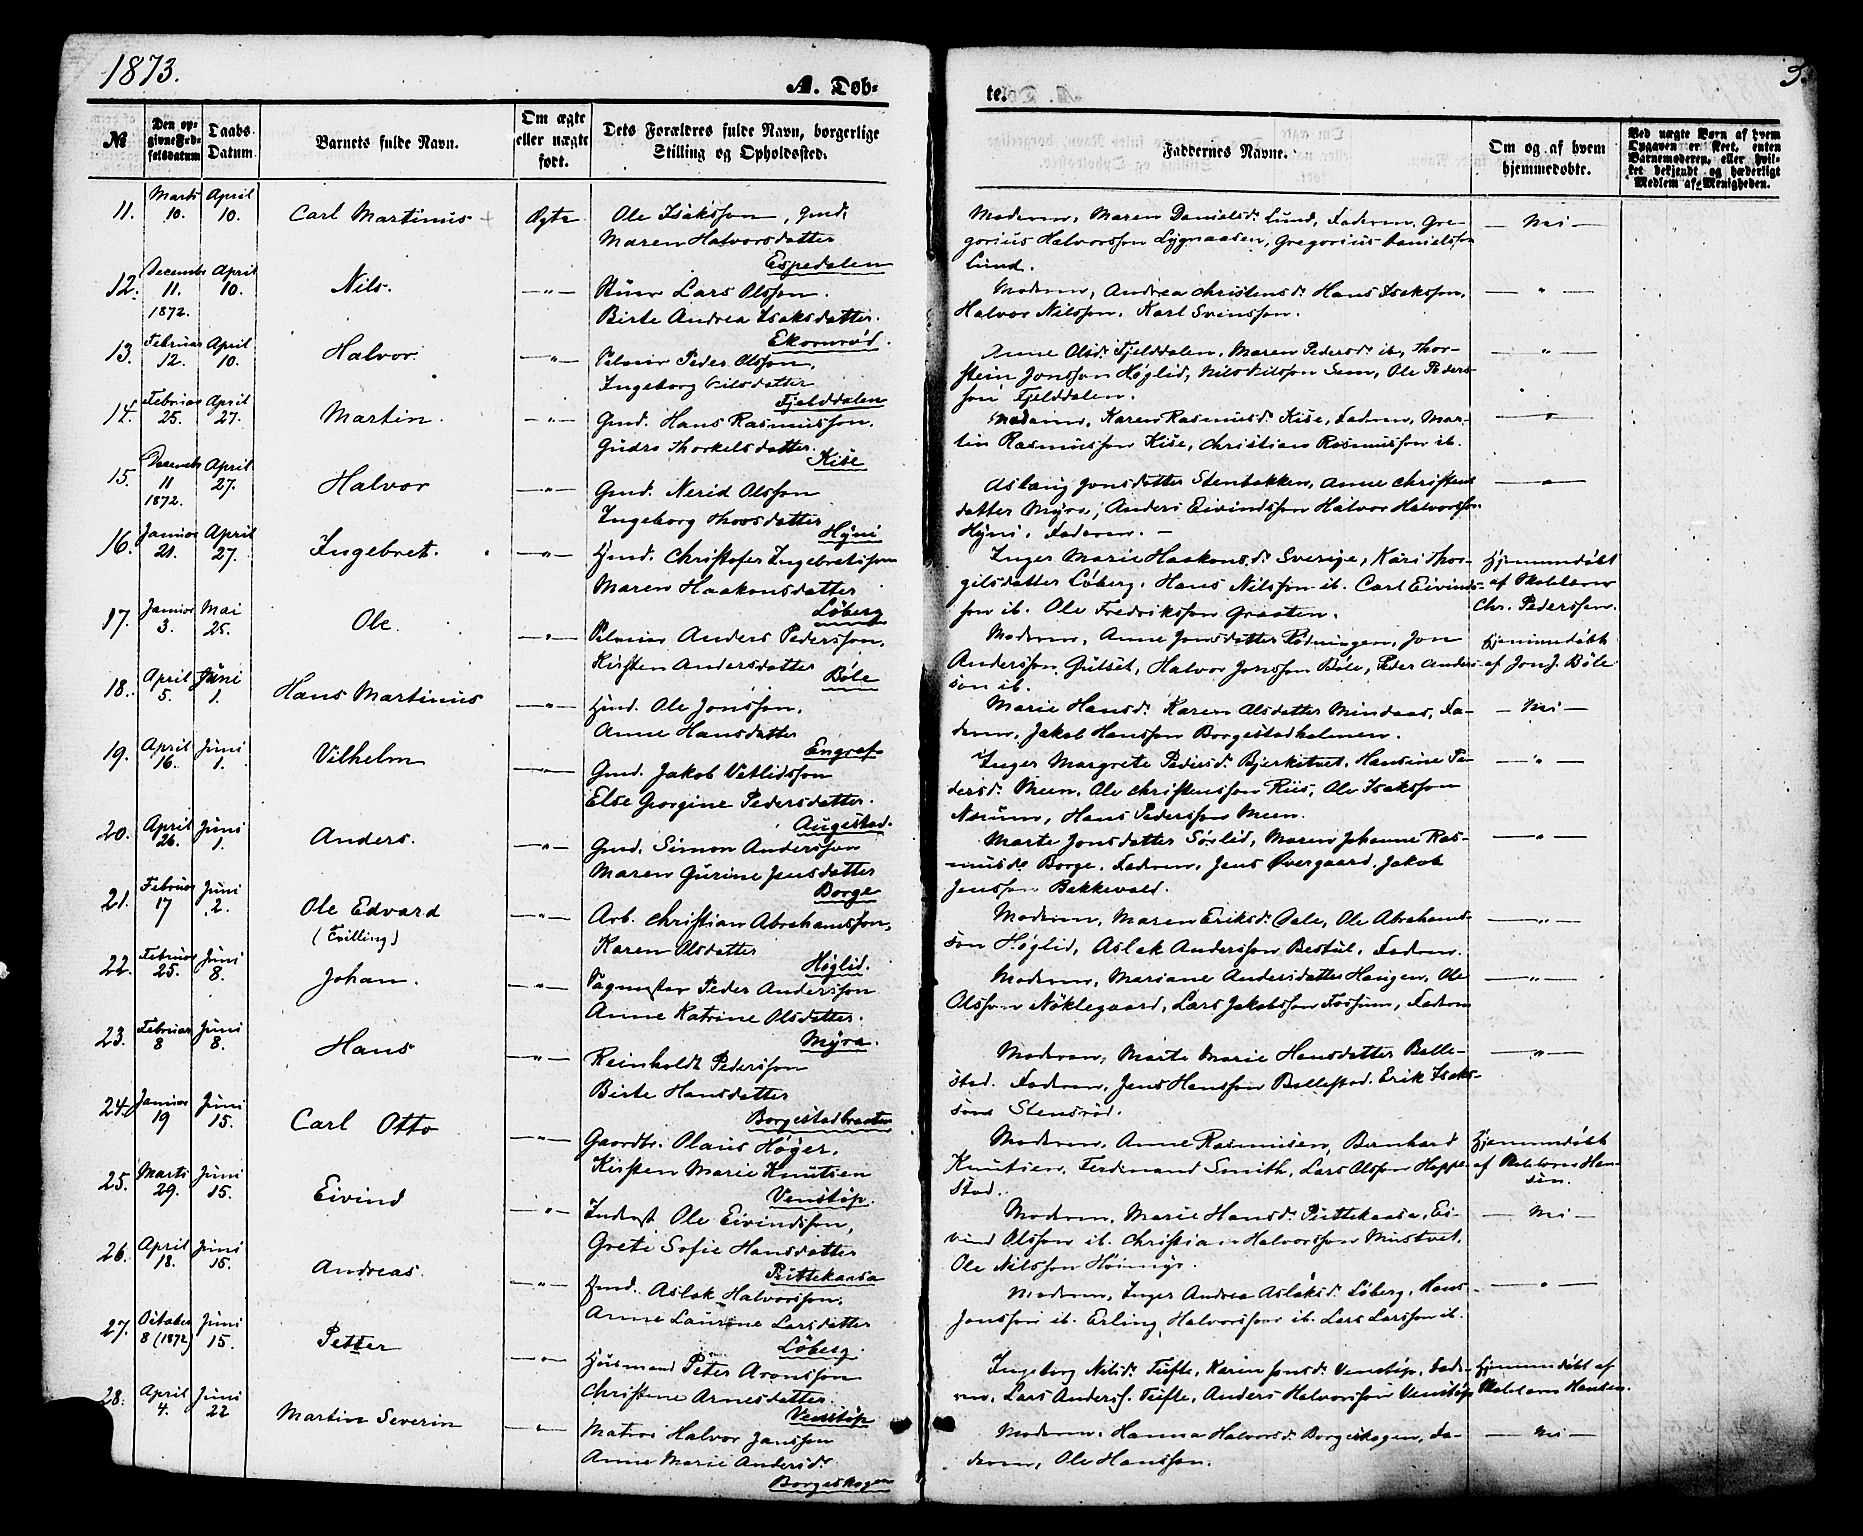 1873.
A. Døb-
te.
№
Den op-
givne Fød-
selsdatum
Daabs
Datum.
Barnets fulde Navn.
Om ægte
eller uægte
født.
Dets Forældres fulde Navn, borgerlige
Stilling og Opholdssted.
Faddernes Navne.
Om og af hvem
hjemmedøbte.
Ved uægte Børn af hvem
Opgaven er skeet, enten
Barnemoderen, eller hvil-
ket bekjendt og hæderligt
Medlem af Menigheden.
11. Marts 10. April 10. Carl Martinus Ægte
Ole Isaksson, Gmd.
Maren Halvorsdatter
Espedalen
Moderen, Maren Danielsd. Lund, Faderen, Gre-
gorius Halvorsson Lygnaasen, Gregorius Danielsson
Lund.
Nei
12. Decembr 11. 1872. April 10. Nils. —"—
Lars Olsson.
Birte Andrea Isaksdatter.
Ekornrød.
Moderen, Andrea Christensd. Hans Isaksson,
Halvor Nilsson, Karl Svensson.
—"—
13. Februar 12. April 10. Halvor. —"—
Peder Olsson,
Ingeborg Nilsdatter
Fjelddalen
Anne Olsd. Fjelddalen, Maren Pedersd. ib, Thor-
stein Jonsson Høglid, Nils Nilsson Sem, Ole Peders-
son Fjelddalen.
—"—
14. Februar 25. April 27. Martin. —"—
Gmd. Hans Rasmusson,
Gudro Thorkelsdatter.
Kise
Moderen, Karen Rasmusd. Kise, Faderen, Mar-
tin Rasmusson Kise, Christian Rasmusson ib.
—"—
15. Decembr 11 1872. April 27. Halvor —"—
Gmd. Nerid Olsson
Ingeborg Thovsdatter
Hyni
Aslaug Jonsdatter Stenbakken, Anne Christens
datter Myra, Anders Eivindsson Halvor Halvorsson
Hyni, Faderen. —
—"—
16. Januar 21. April 27. Ingebret. —"—
Hmd. Christofer Ingebretsson
Maren Haakonsdatter
Løberg
Inger Marie Haakonsd. Sverige, Kari Thor-
gilsdatter Løberg, Hans Nilsson ib. Carl Eivinds-
son ib. Ole Fredriksson Graaten.
Hjemmedøbt
af Skolelærer
Chr. Pederssen.
17. Januar 3. Mai 25. Ole. —"—
Anders Pedersson,
Kirsten Andersdatter
Bøle
Moderen, Anne Jonsdatter Rødningen, Jon
Andersson Gulset, Halvor Jonsson Bøle, Peder Anders-
son ib.
Hjemmedøbt
af Jon J. Bøle
18. April 5. Juni 1. Hans Martinus —"—
Hmd. Ole Jonsson,
Anne Hansdatter
Engraf
Marie Hansd. Karen Olsdatter Mindaas, Fa-
deren, Jakob Hansson Borgestadholmen.
— Nei —
19. April 16. Juni 1. Vilhelm —"—
Gmd. Jakob Vetlidsson
Else Georgine Pedersdatter.
Augestad.
Inger Margrete Pedersd. Bjerketvet. Hansine Pe-
dersd. Meen, Ole Christensson Riis, Ole Isaksson
Nærum, Hans Pedersson Meen.
—"—
20. April 26. Juni 1. Anders. —"—
Gmd. Simon Andersson
Maren Gurine Jensdatter
Borge
Marte Jonsdatter Sørlid, Maren Johanne Ras-
musd. Borge. Faderen, Jens Øvergaard, Jakob
Jensson Bakkevold.
—"—
21. Februar 17 Juni 2. Ole Edvard —"—
(Tvilling)
Arb. Christian Abrahamsson,
Karen Olsdatter
Høglid.
Moderen, Maren Eriksd. Aale, Ole Abrahams-
son Høglid, Aslak Andersson Bestul. Faderen.
—"—
22. Februar 25. Juni 8. Johan. —"—
Vagmester Peder Andersson
Anne Katrine Olsdatter.
Myra.
Moderen, Mariane Andersdatter Haugen, Ole
Olsson Nøklegaard, Lars Jakobsson Fossum, Faderen
—"—
23. Februar 8 Juni 8. Hans —"—
Reinholdt Pedersson
Birte Hansdatter
Borgestadbraaten
Moderen, Marte Marie Hansdatter Balle-
stad. Faderen, Jens Hansson Ballestad. Erik Isaks-
søns Stensrød.
—"—
24. Januar 19 Juni 15. Carl Otto —"—
Gaardbr. Olaus Høger.
Kirsten Marie Knutsen
Venstøp.
Moderen, Anne Rasmussen, Bernhard
Knutsen, Ferdinand Smith, Lars Olsson Hoppe-
stad.
Hjemmedøbt
af Skolelærer Han-
sen.
25. Marts 29. Juni 15. Eivind —"—
Inderst Ole Eivindsson,
Grete Sofie Hansdatter
Püttekaasa
Moderen, Marie Hansd. Püttekaasa, Ei-
vind Olsson ib. Christian Halvorsson Mustvet.
Ole Nilsson
— Nei —
26. April 18. Juni 15. Andreas. —"—
Hmd. Aslak Halvorsson,
Anne Laurine Larsdatter
Løberg.
Moderen, Inger Andrea Aslaksd. Løberg, Hans
Jonsson ib. Erling Halvorsson ib. Lars Larsson ib.
—"—
27. October 8 (1872) Juni 15. Petter —"—
Husmand Peter Aronsson
Christine Arnesdatter.
Venstøp
Ingeborg Nilsd. Tufte, Karen Jonsd. Venstøp, Fade-
ren, Lars Anderss. Tufte, Anders Halvorsson Venstøp
Hjemmedøbt af
Skolelærer Hansen.
28. April 4. Juni 22 Martin Severin —"—
Matros Halvor Jansson
Anne Marie Andersd.
Borgeskogen
Moderen. Hanna Halvorsd. Borgeskogen, Fa-
deren, Ole Hansson.
— Nei —